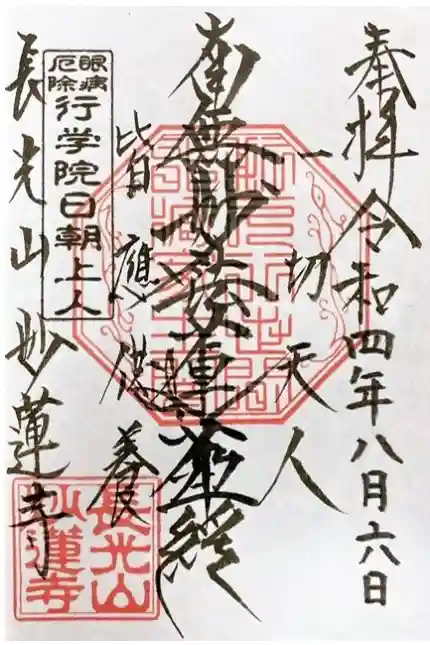 奉拝 令和四年八月六日
一切天人
南無妙法蓮華経
皆應供養
眼病
厄除
行学院日朝上人
長光山妙蓮寺
長光山
妙蓮寺